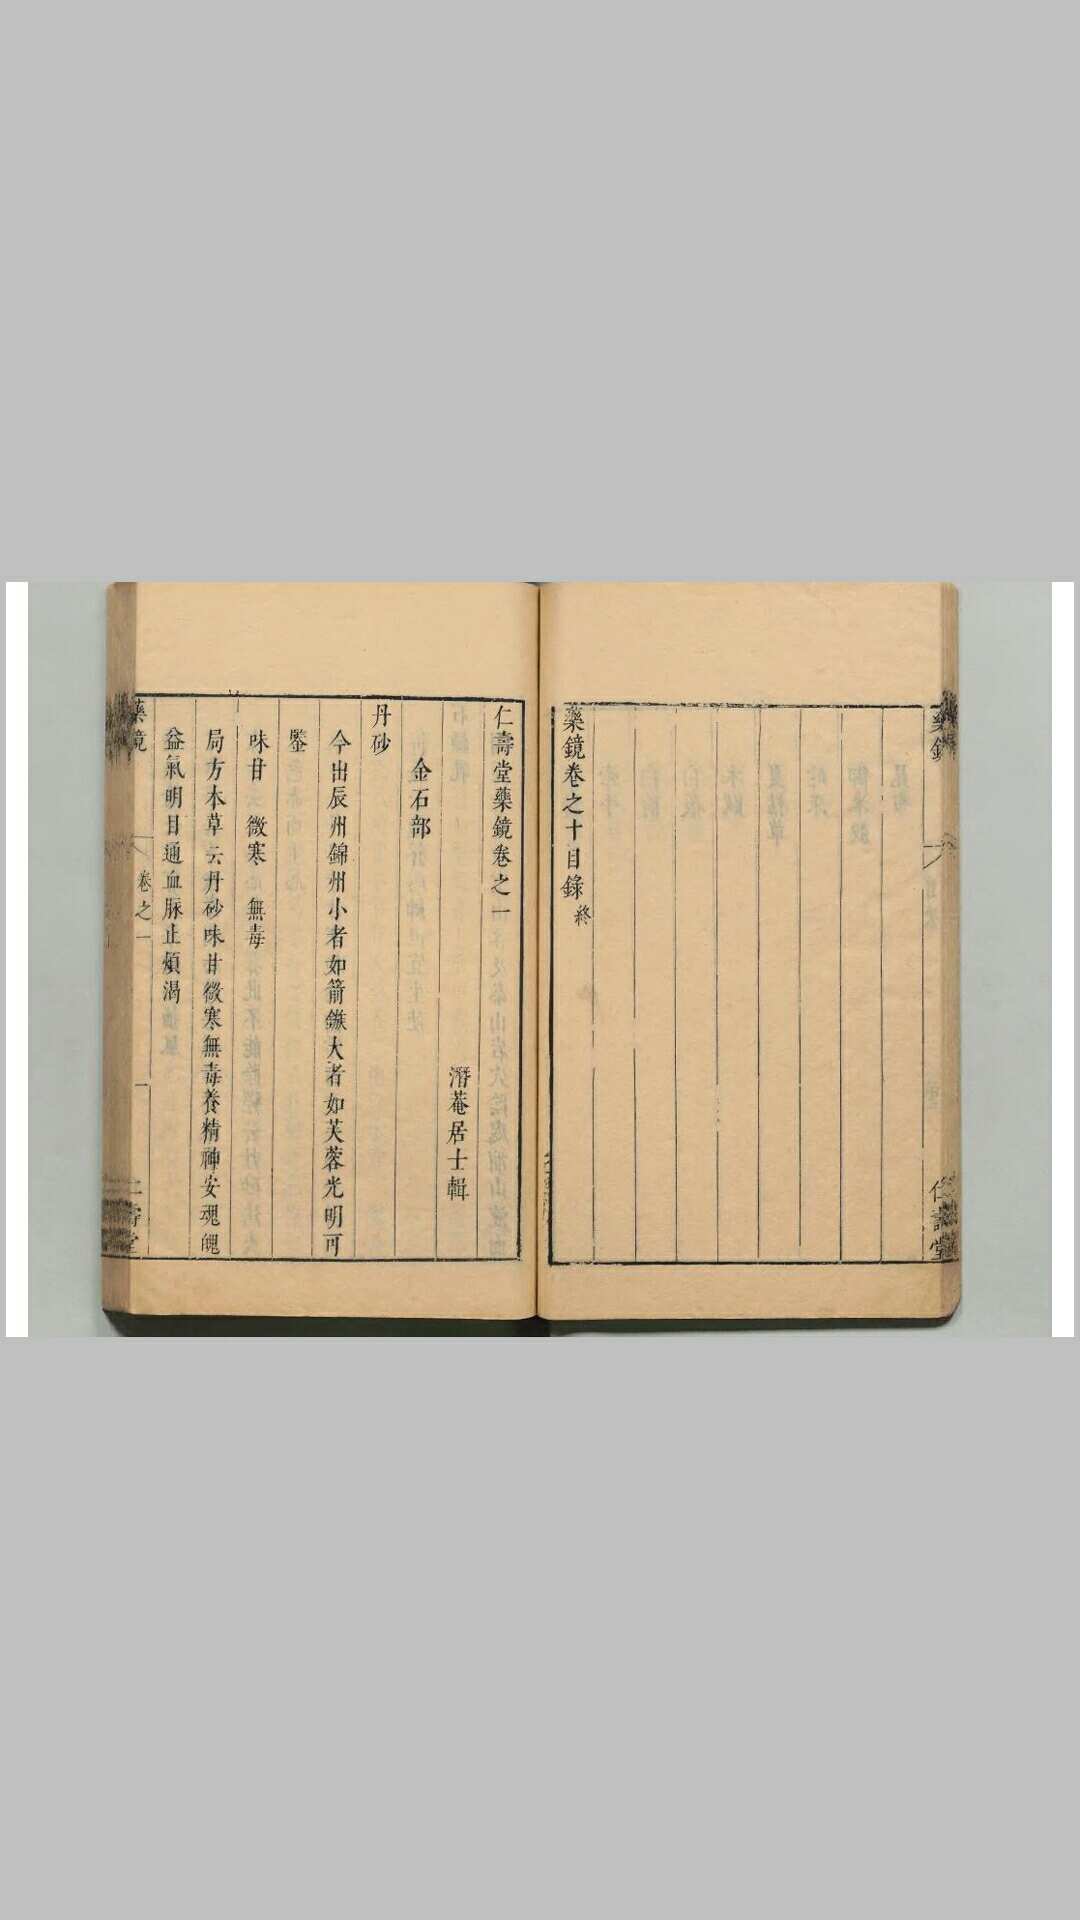 藥鏡
仁壽堂
藥鏡卷之十目錄終
仁壽堂藥鏡卷之一
潛菴居士輯
金石部
丹砂
今出辰州錦州小者如箭鏃大者如芙蓉光明可
鑒
味甘 微寒 無毒
局方本草云丹砂味甘微寒無毒養精神安魂魄
益氣明目通血脉止煩渴
藥鏡
卷之一
一
仁壽堂